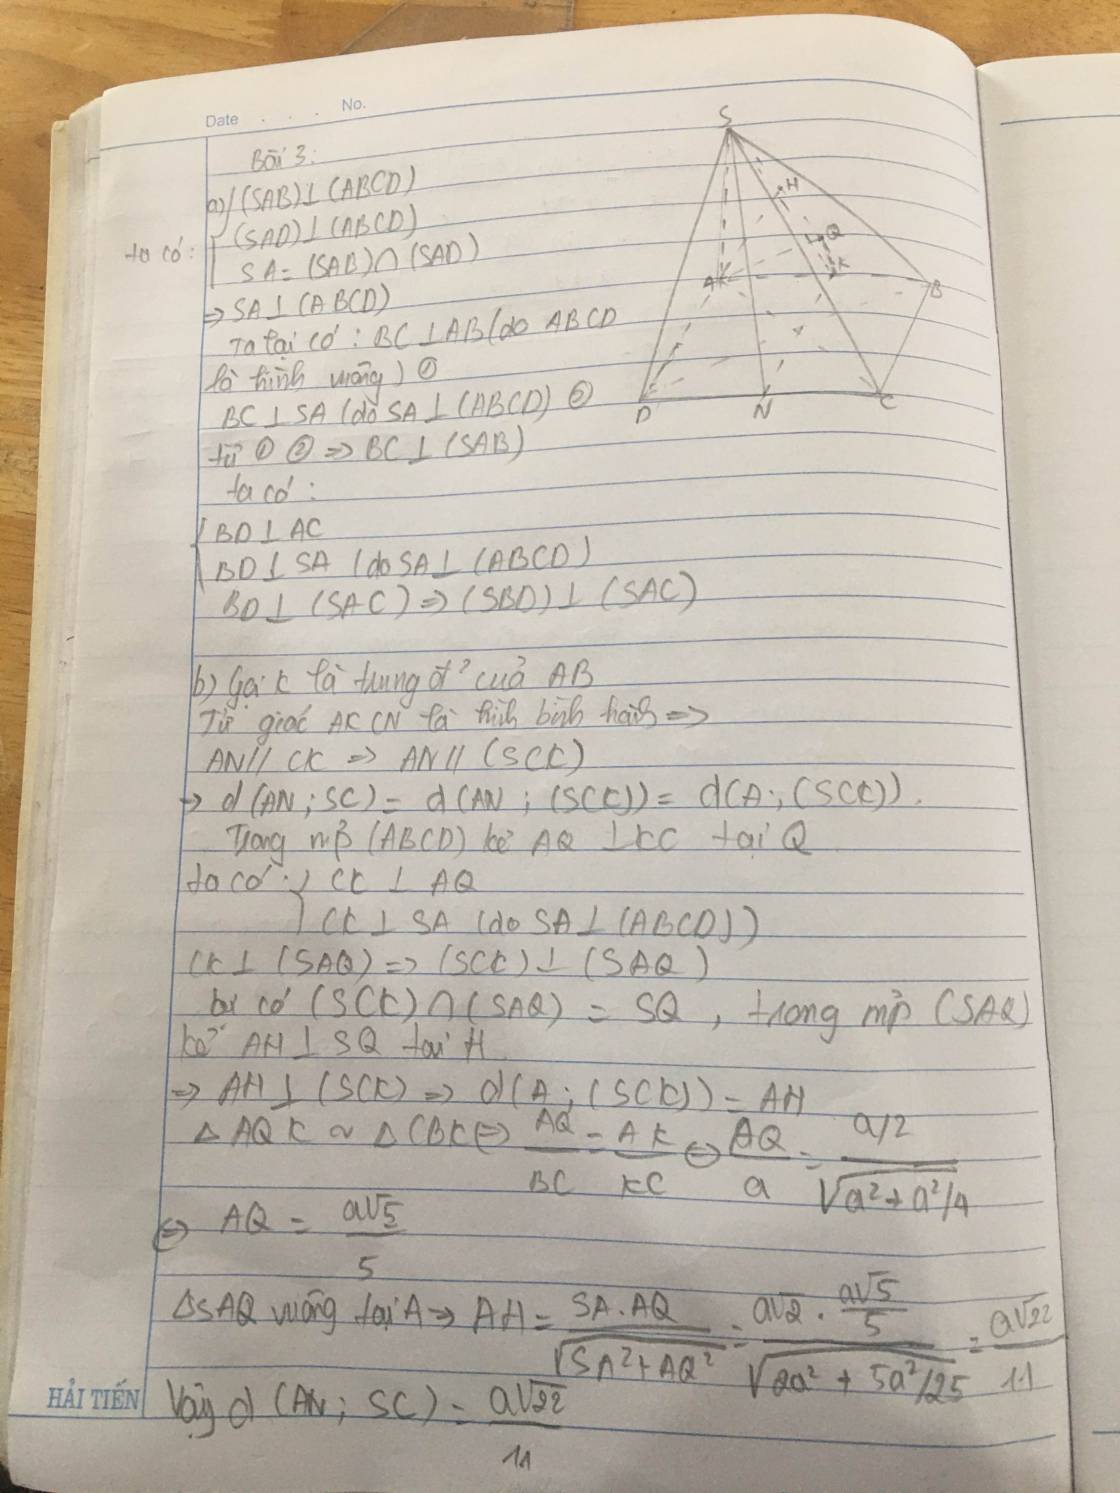 Date . . . No.
Bài 3:
a) (SAB)⊥(ABCD)
ta có: (SAD)⊥(ABCD)
SA = (SAB)∩(SAD)
⇒ SA⊥(ABCD)
Ta lại có : BC⊥AB(do ABCD
là hình vuông) ①
BC⊥SA (do SA⊥(ABCD) ②
từ ① ② ⇒ BC⊥(SAB)
ta có :
BD⊥AC
BD⊥SA (do SA⊥(ABCD)
BD⊥(SAC) ⇒ (SBD)⊥(SAC)
S
H
Q
A
K
B
D
N
C
b) Gọi K là trung đ² của AB
Tứ giác AKCN là hình bình hành ⇒
AN// CK ⇒ AN// (SCK)
⇒ d(AN ; SC) = d(AN ; (SCK)) = d(A ; (SCK)).
Trong mp (ABCD) kẻ AQ ⊥KC tại Q
ta có : CK ⊥ AQ
CK ⊥ SA (do SA⊥(ABCD))
CK⊥ (SAQ) ⇒ (SCK)⊥(SAQ)
ta có (SCK)∩(SAQ) = SQ , trong mp (SAQ)
kẻ AH⊥SQ tại H
⇒ AH⊥(SCK) ⇒ d(A ; (SCK)) = AH
Δ AQK ~ ΔCBK ⇔ AQ/BC = AK/KC ⇔ AQ/a = (a/2)/√(a²+a²/4)
⇔ AQ = a√5/5
ΔSAQ vuông tại A ⇒ AH = SA.AQ/√(SA²+AQ²) = (a√2 . a√5/5)/√(2a² + 5a²/25) = a√22/11
Vậy d (AN ; SC) = a√22/11
HẢI TIẾN